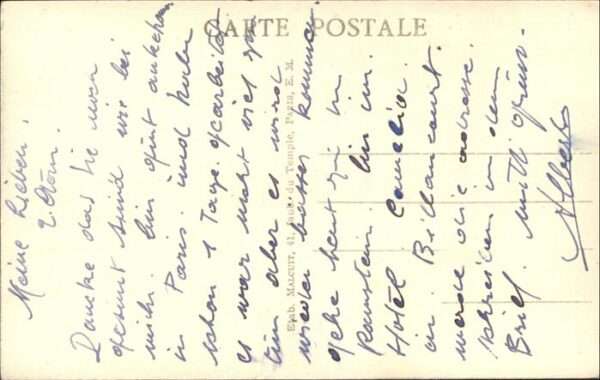 CARTE POSTALE
Meine Lieben!
Danke das Sie
gesunt sind wie bei
mihr. bin gut
in Paris. und habe
schon 1 Tage gearbeitet
es war nicht viel zu
tün aber es wird
wieder besser kommen.
gehe heut zu
bin im
Hotel Camelia.
in Billancourt.
werde die adresse.
schreiben in dem
Brief. mitt grüss.
Albert
Edit. MALCUIT, 41, Faub. du Temple, PARIS, E. M.